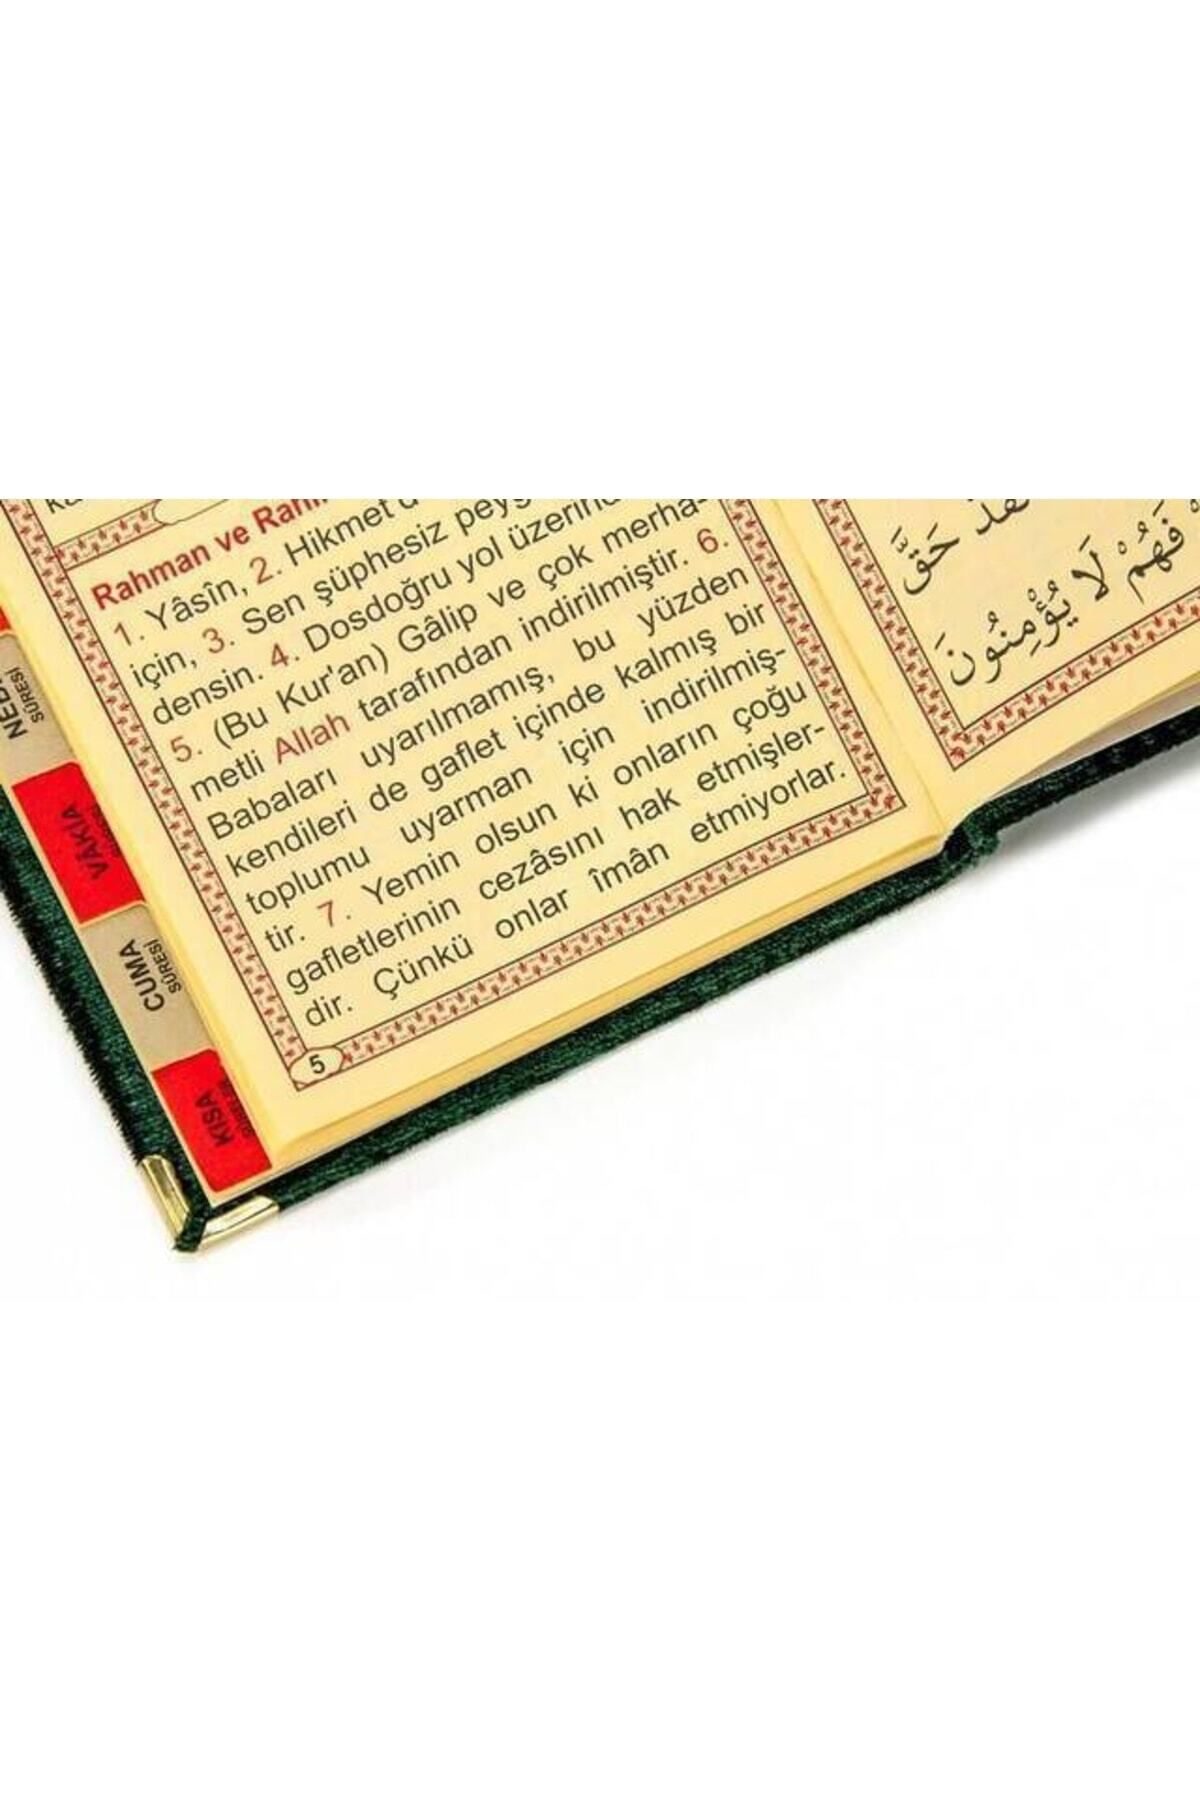 Rahman ve
1. Yâsîn, 2. Hikmet
için, 3. Sen şüphesiz
densin. 4. Dosdoğru yol
5. (Bu Kur'an) Gâlip ve çok merha-
metli Allah tarafından indirilmiştir. 6.
Babaları uyarılmamış, bu yüzden
kendileri de gaflet içinde kalmış bir
toplumu uyarman için indirilmiş-
tir. 7. Yemin olsun ki onların çoğu
gafletlerinin cezâsını hak etmişler-
dir. Çünkü onlar îmân etmiyorlar.
5
حَقَّ
فَهُمْ لَا يُؤْمِنُونَ
SÛRESİ
VÂKIA
CUMA
SÛRESİ
KISA